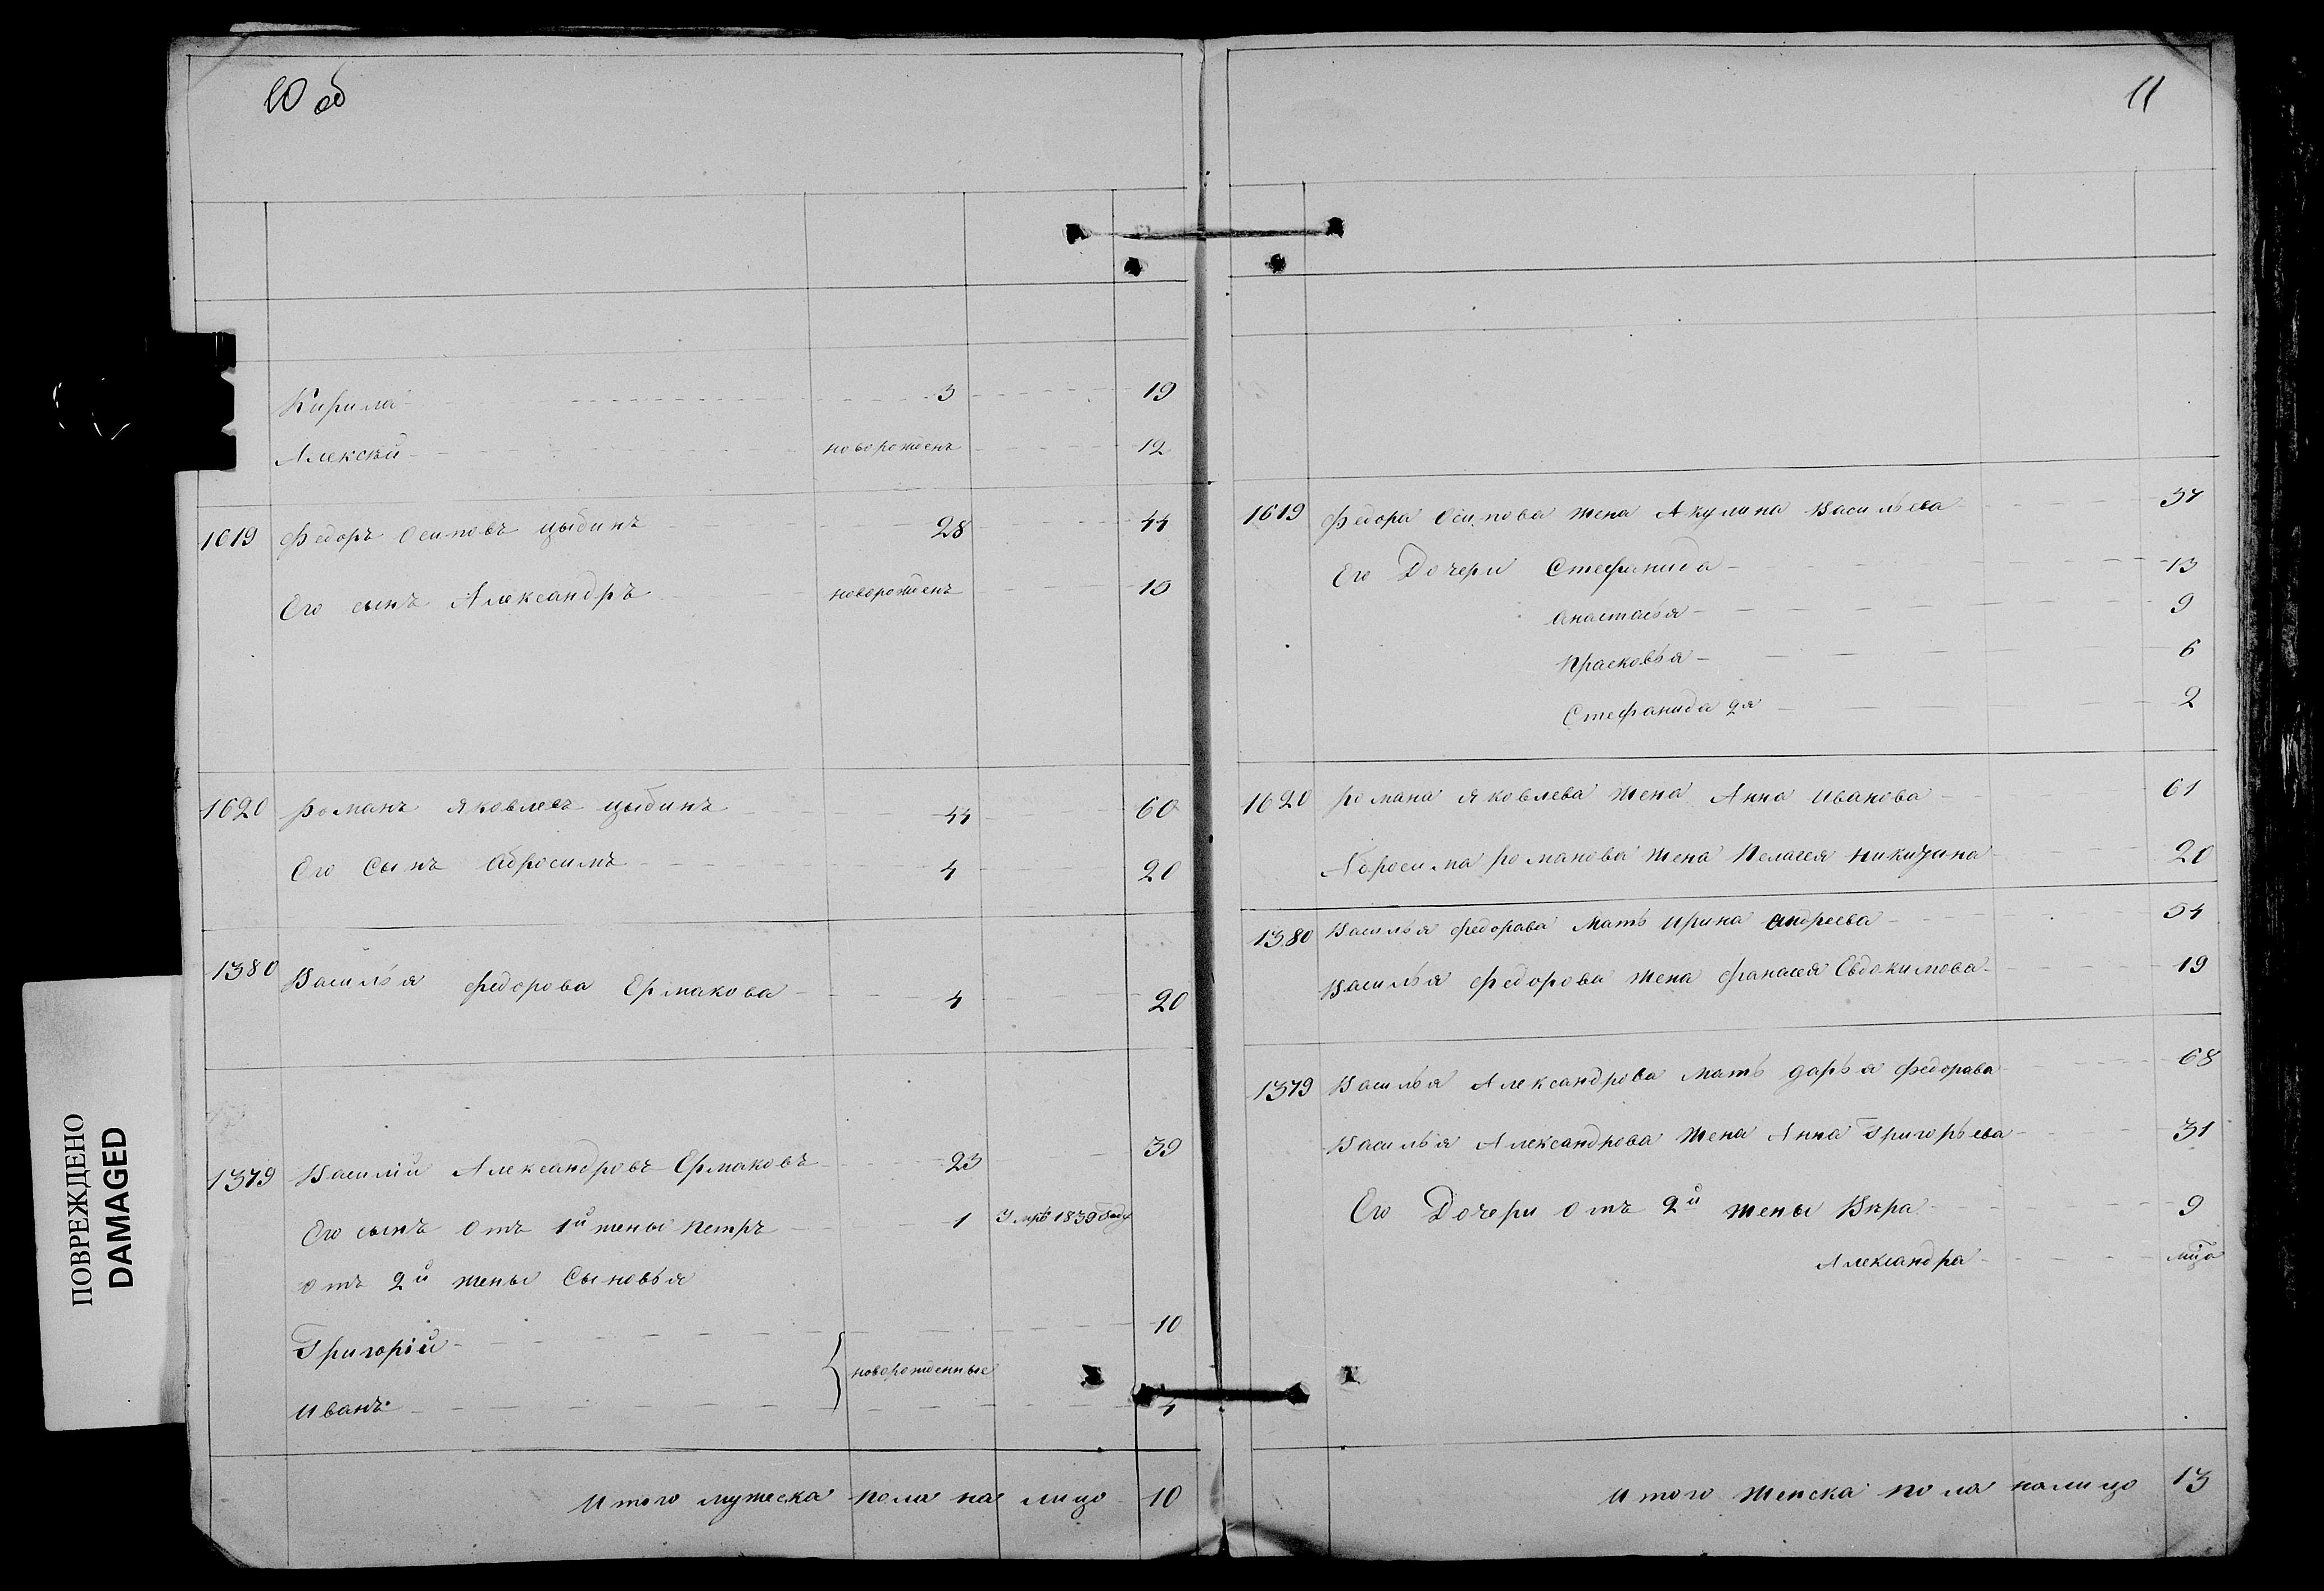 10 об
Кирила 3 19
Алексѣй новорожденъ 12
1619 Федоръ Осиповъ цыбинъ 28 44
Его сынъ Александръ новорожденъ 15
1620 Романъ яковлевъ цыбинъ 44 60
Его Сынъ Абросимъ 4 20
1380 Василья федорова Ермакова 4 20
1379 Василій Александровъ Ермаковъ 23 39
Его сынъ отъ 1й жены петръ 1
отъ 2й жены Сыновья
Григорій 10
новорожденные
иванъ 4
итого мужеска пола на лицо 10
11
1619 Федора Осипова жена Акулина Васильева 37
Его Дочери Стефанида 13
анастасья 9
прасковья 6
Стефанида 2я 2
1620 романа яковлева жена Анна иванова 61
Абросима романова жена Пелагея никитина 20
1380 Василья федорава мать ирина андреева 54
Василья федорова жена фанасея Евдокимова 19
1379 Василья Александрова мать дарья федорава 68
Василья Александрова жена Анна Григорьева 31
Его Дочери отъ 2й жены Вѣра 9
Александра
итого женска пола налицо 13
ПОВРЕЖДЕНО
DAMAGED